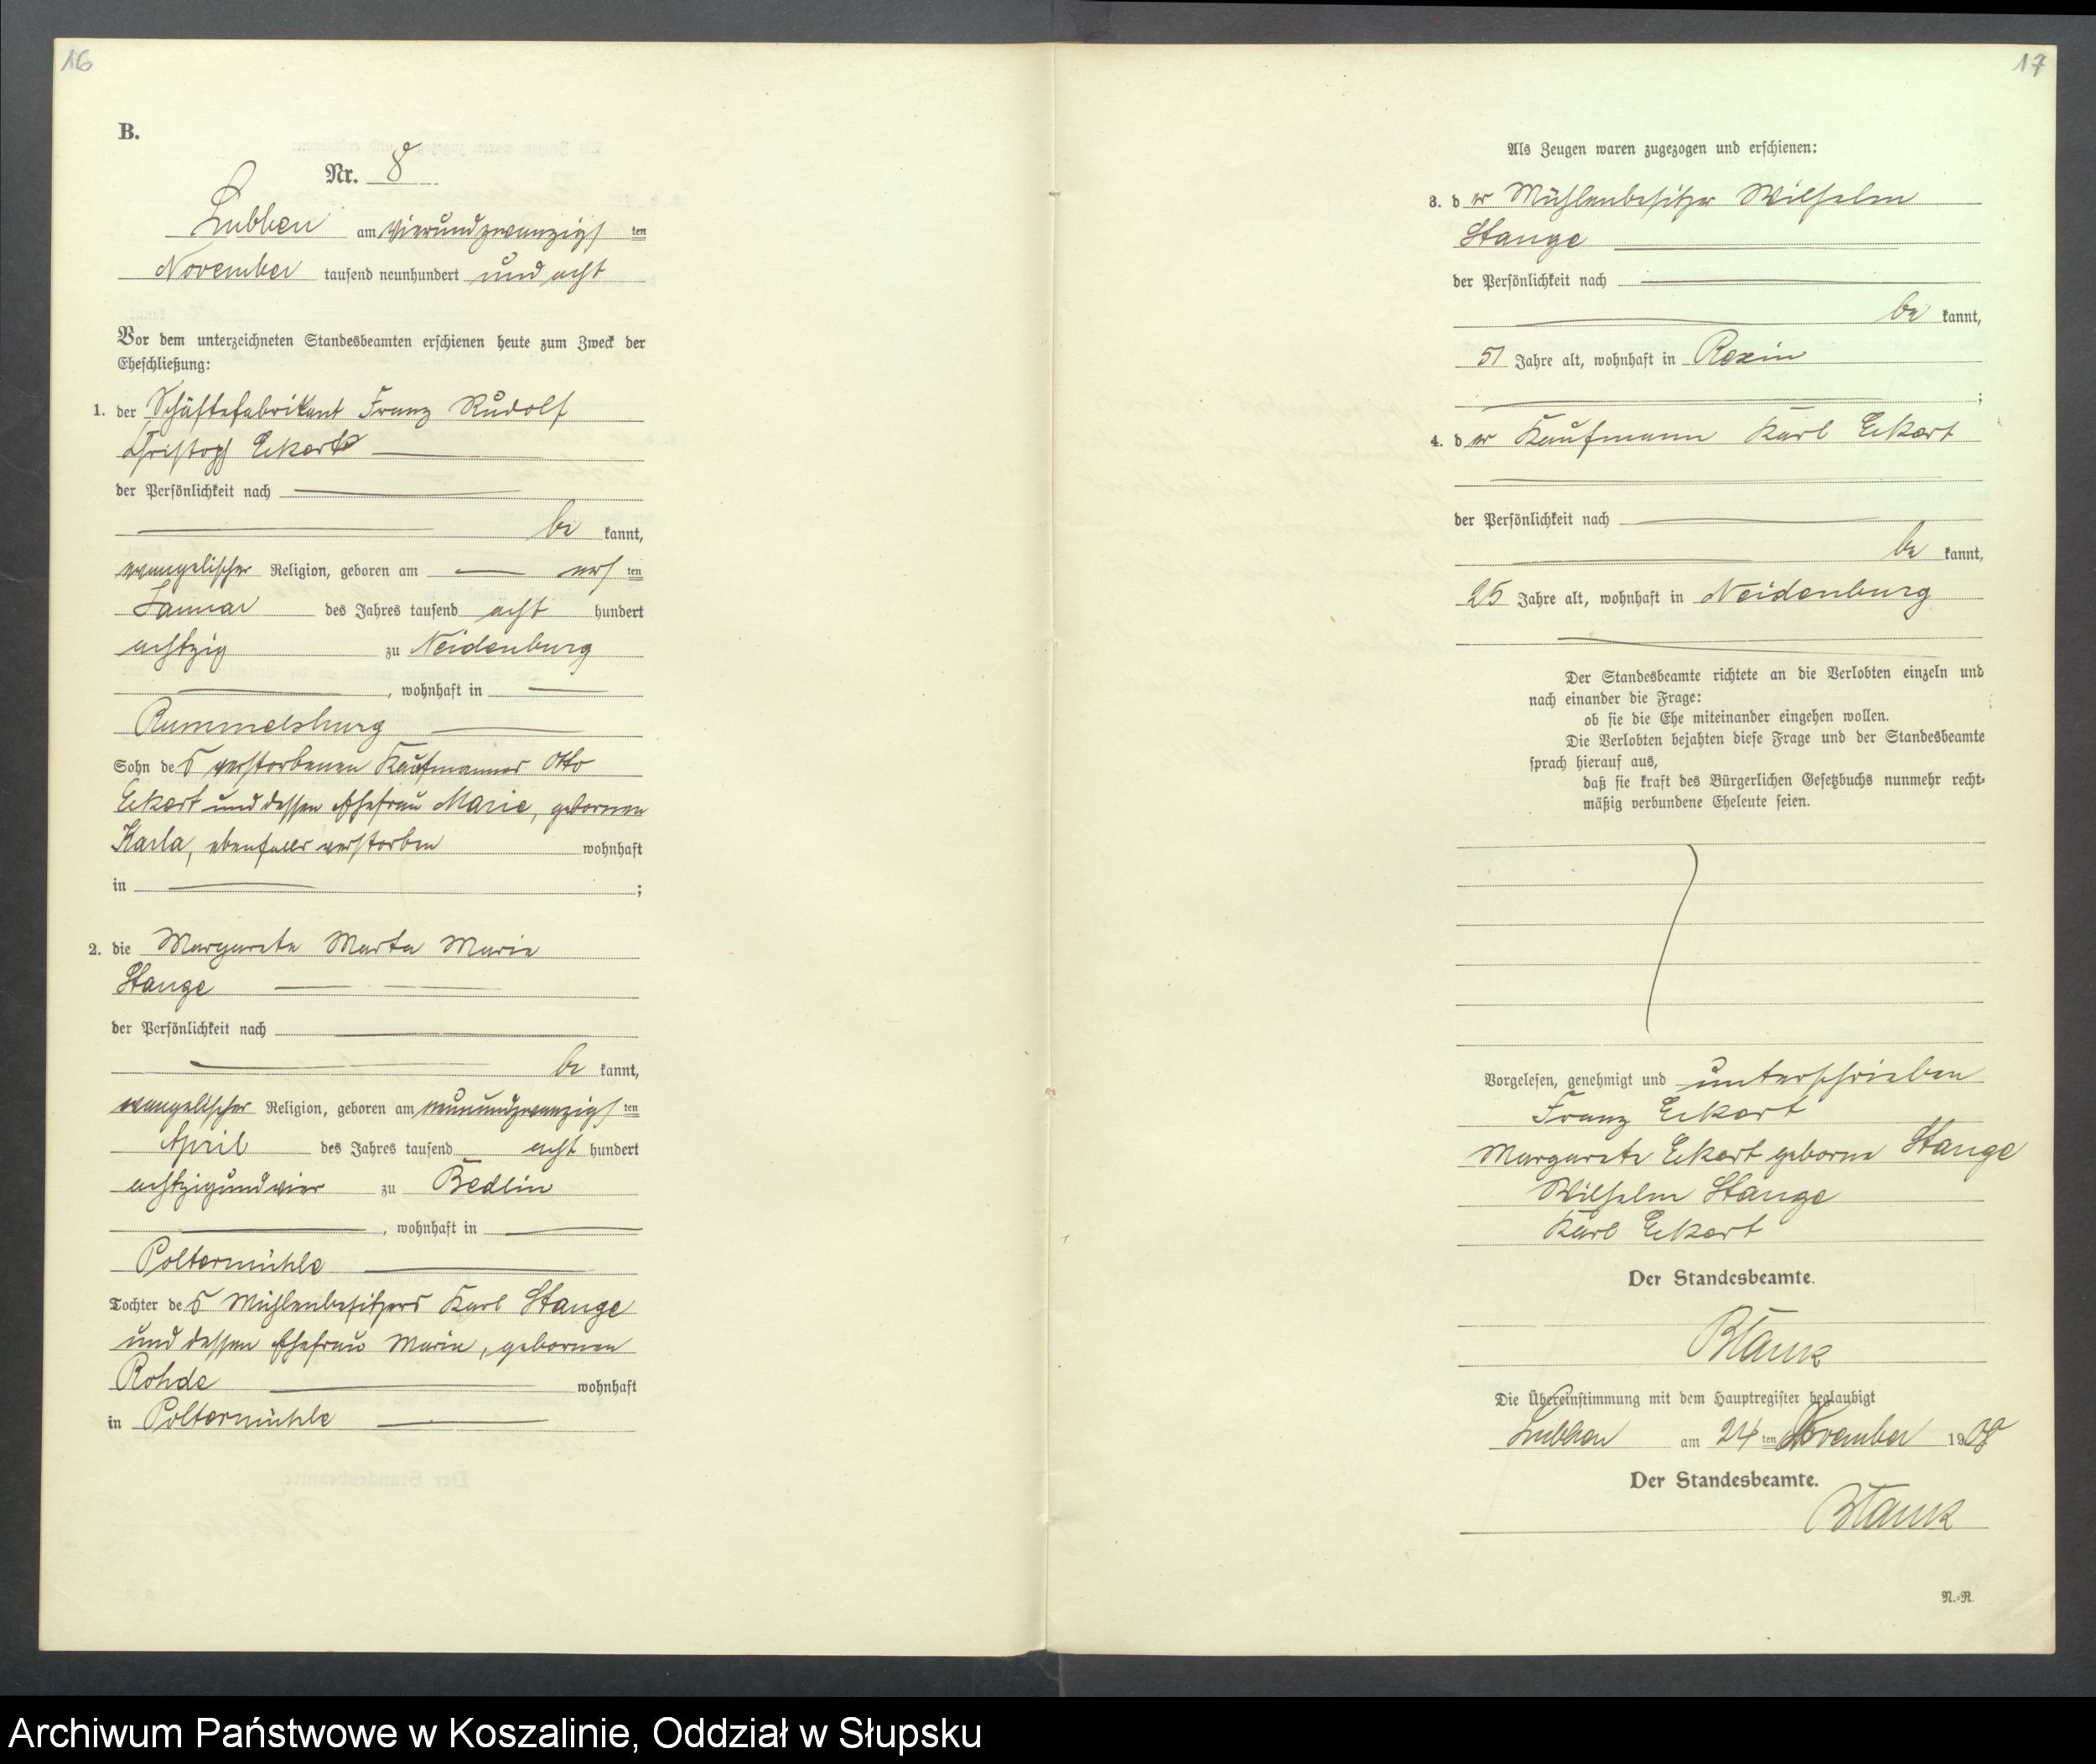 16
B.
Nr. 8
Lubben am vierundzwanzigs ten
November tausend neunhundert und acht
Vor dem unterzeichneten Standesbeamten erschienen heute zum Zweck der
Eheschließung:
1. der Schäftefabrikant Franz Rudolf
Christoph Eckart
der Persönlichkeit nach
be kannt,
evangelischer Religion, geboren am ers ten
Januar des Jahres tausend acht hundert
achtzig zu Neidenburg
, wohnhaft in
Rummelsburg
Sohn des verstorbenen Kaufmannes Otto
Eckart und dessen Ehefrau Marie, gebornen
Karla, ebenfalls verstorben wohnhaft
in ;
2. die Margarete Marta Marie
Stange
der Persönlichkeit nach
be kannt,
evangelischer Religion, geboren am neunundzwanzigs ten
April des Jahres tausend acht hundert
achtzigundvier zu Bedlin
, wohnhaft in
Poltermühle
Tochter des Mühlenbesitzers Karl Stange
und dessen Ehefrau Marie, gebornen
Rohde wohnhaft
in Poltermühle
17
Als Zeugen waren zugezogen und erschienen:
3. der Mühlenbesitzer Wilhelm
Stange
der Persönlichkeit nach
be kannt,
51 Jahre alt, wohnhaft in Rexin
;
4. der Kaufmann Karl Eckart
der Persönlichkeit nach
be kannt,
25 Jahre alt, wohnhaft in Neidenburg
Der Standesbeamte richtete an die Verlobten einzeln und
nach einander die Frage:
ob sie die Ehe miteinander eingehen wollen.
Die Verlobten bejahten diese Frage und der Standesbeamte
sprach hierauf aus,
daß sie kraft des Bürgerlichen Gesetzbuchs nunmehr recht-
mäßig verbundene Eheleute seien.
Vorgelesen, genehmigt und unterschrieben
Franz Eckart
Margarete Eckart geborne Stange
Wilhelm Stange
Karl Eckart
Der Standesbeamte.
Blank
Die Übereinstimmung mit dem Hauptregister beglaubigt
Lubben am 24 ten November 1908
Der Standesbeamte.
Blank
N.-R.
Archiwum Państwowe w Koszalinie, Oddział w Słupsku